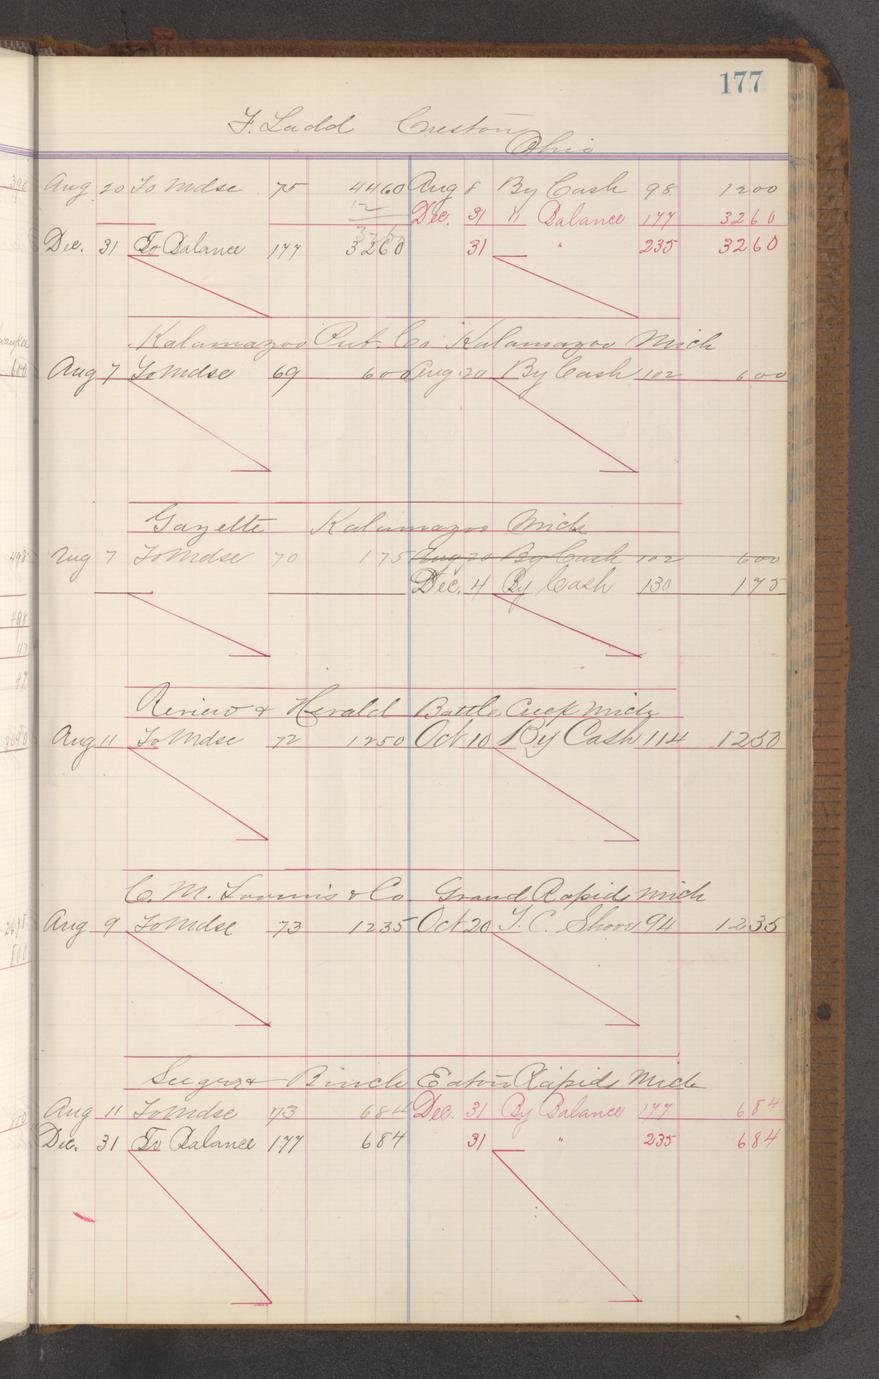 177
F. Ladd Creston
Ohio
Aug 20 To Mdse 75 4460 Aug 8 By Cash 98 1200
12 Dec. 31 " Balance 177 3260
3260
Dec. 31 To Balance 177 3260 31 " 235 3260
Kalamazoo Pub. Co Kalamazoo Mich
Aug 7 To Mdse 69 600 Aug 20 By Cash 102 600
Gazette Kalamazoo Mich
Aug 7 To Mdse 70 175 Aug 20 By Cash 102 600
Dec. 4 By Cash 130 175
Review & Herald Battle Creek Mich
Aug 11 To Mdse 72 1250 Oct 10 By Cash 114 1250
C. M. Loomis & Co. Grand Rapids Mich
Aug 9 To Mdse 73 1235 Oct 20 T. C. 94 1235
& Eaton Rapids Mich
Aug 11 To Mdse 73 684 Dec. 31 By Balance 177 684
Dec. 31 To Balance 177 684 31 " 235 684